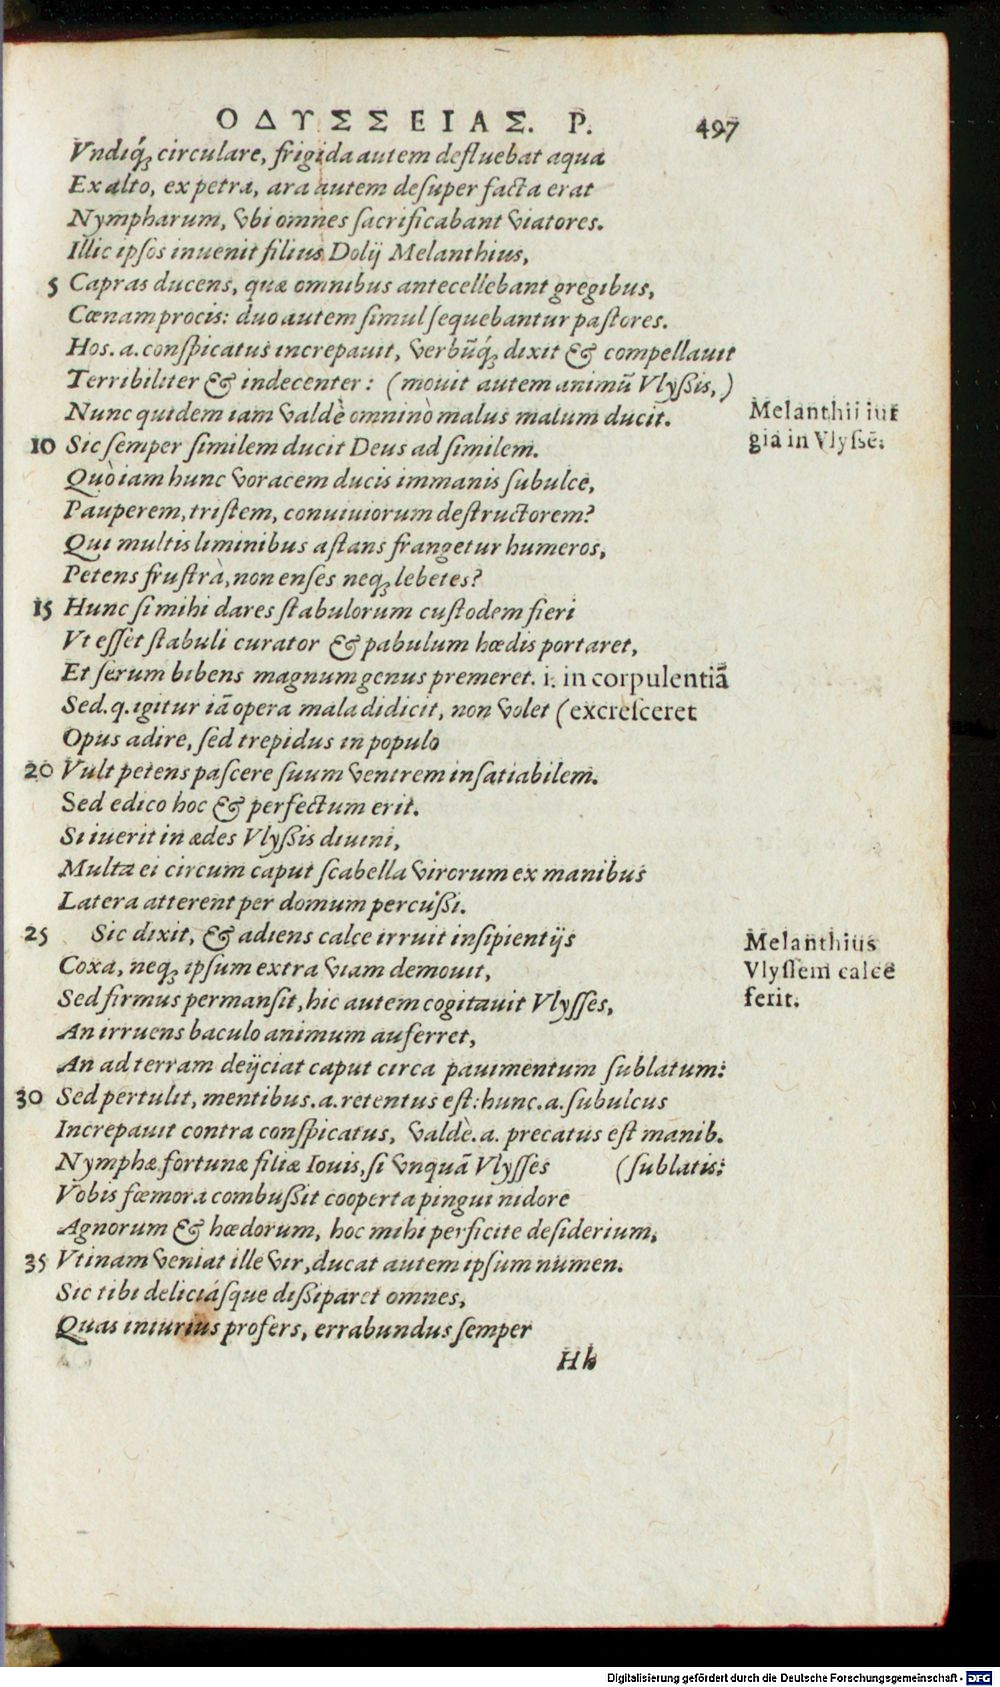 ΟΔΥΣΣΕΙΑΣ. Ρ. 497
Vndiq́; circulare, frigida autem defluebat aqua
Ex alto, ex petra, ara autem deſuper facta erat
Nympharum, vbi omnes ſacrificabant viatores.
Illic ipſos inuenit filius Dolij Melanthius,
5 Capras ducens, quæ omnibus antecellebant gregibus,
Cœnam procis: duo autem ſimul ſequebantur paſtores.
Hos. a. conſpicatus increpauit, verbũq́; dixit & compellauit
Terribiliter & indecenter: (mouit autem animũ Vlyßis,)
Nunc quidem iam valdè omninò malus malum ducit.
Melanthii iur
gia in Vlyſsē:
10 Sic ſemper ſimilem ducit Deus ad ſimilem.
Quò iam hunc voracem ducis immanis ſubulce,
Pauperem, triſtem, conuiuiorum deſtructorem?
Qui multis liminibus aſtans frangetur humeros,
Petens fruſtrà, non enſes neq; lebetes?
15 Hunc ſi mihi dares ſtabulorum cuſtodem fieri
Vt eſſet ſtabuli curator & pabulum hœdis portaret,
Et ſerum bibens magnum genus premeret. i. in corpulentiā
Sed. q. igitur iā opera mala didicit, non volet (excreſceret
Opus adire, ſed trepidus in populo
20 Vult petens paſcere ſuum ventrem inſatiabilem.
Sed edico hoc & perfectum erit.
Si iuerit in ædes Vlyßis diuini,
Multa ei circum caput ſcabella virorum ex manibus
Latera atterent per domum percußi.
25 Sic dixit, & adiens calce irruit inſipientijs
Coxa, neq; ipſum extra viam demouit,
Sed firmus permanſit, hic autem cogitauit Vlyſſes,
Melanthius
Vlyſſem calce
ferit.
An irruens baculo animum auferret,
An ad terram deijciat caput circa pauimentum ſublatum:
30 Sed pertulit, mentibus. a. retentus eſt: hunc. a. ſubulcus
Increpauit contra conſpicatus, valdè. a. precatus eſt manib.
Nymphæ fortunæ filiæ Iouis, ſi vnquā Vlyſſes (ſublatis:
Vobis fœmora combußit cooperta pingui nidore
Agnorum & hœdorum, hoc mihi perficite deſiderium,
35 Vtinam veniat ille vir, ducat autem ipſum numen.
Sic tibi deliciáſque dißiparet omnes,
Quas iniurius profers, errabundus ſemper
Hh
Digitalisierung gefördert durch die Deutsche Forschungsgemeinschaft - DFG